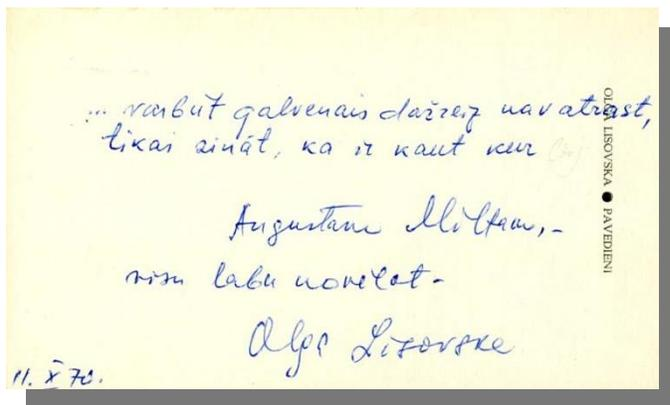 ... varbūt galvenais dažreiz nav atrast,
tikai zināt, ka ir kaut kur
Augustam Miltam,-
visu labu novēlot-
Olga Lisovska
11. X 70.
OLGA LISOVSKA ● PAVEDIENI